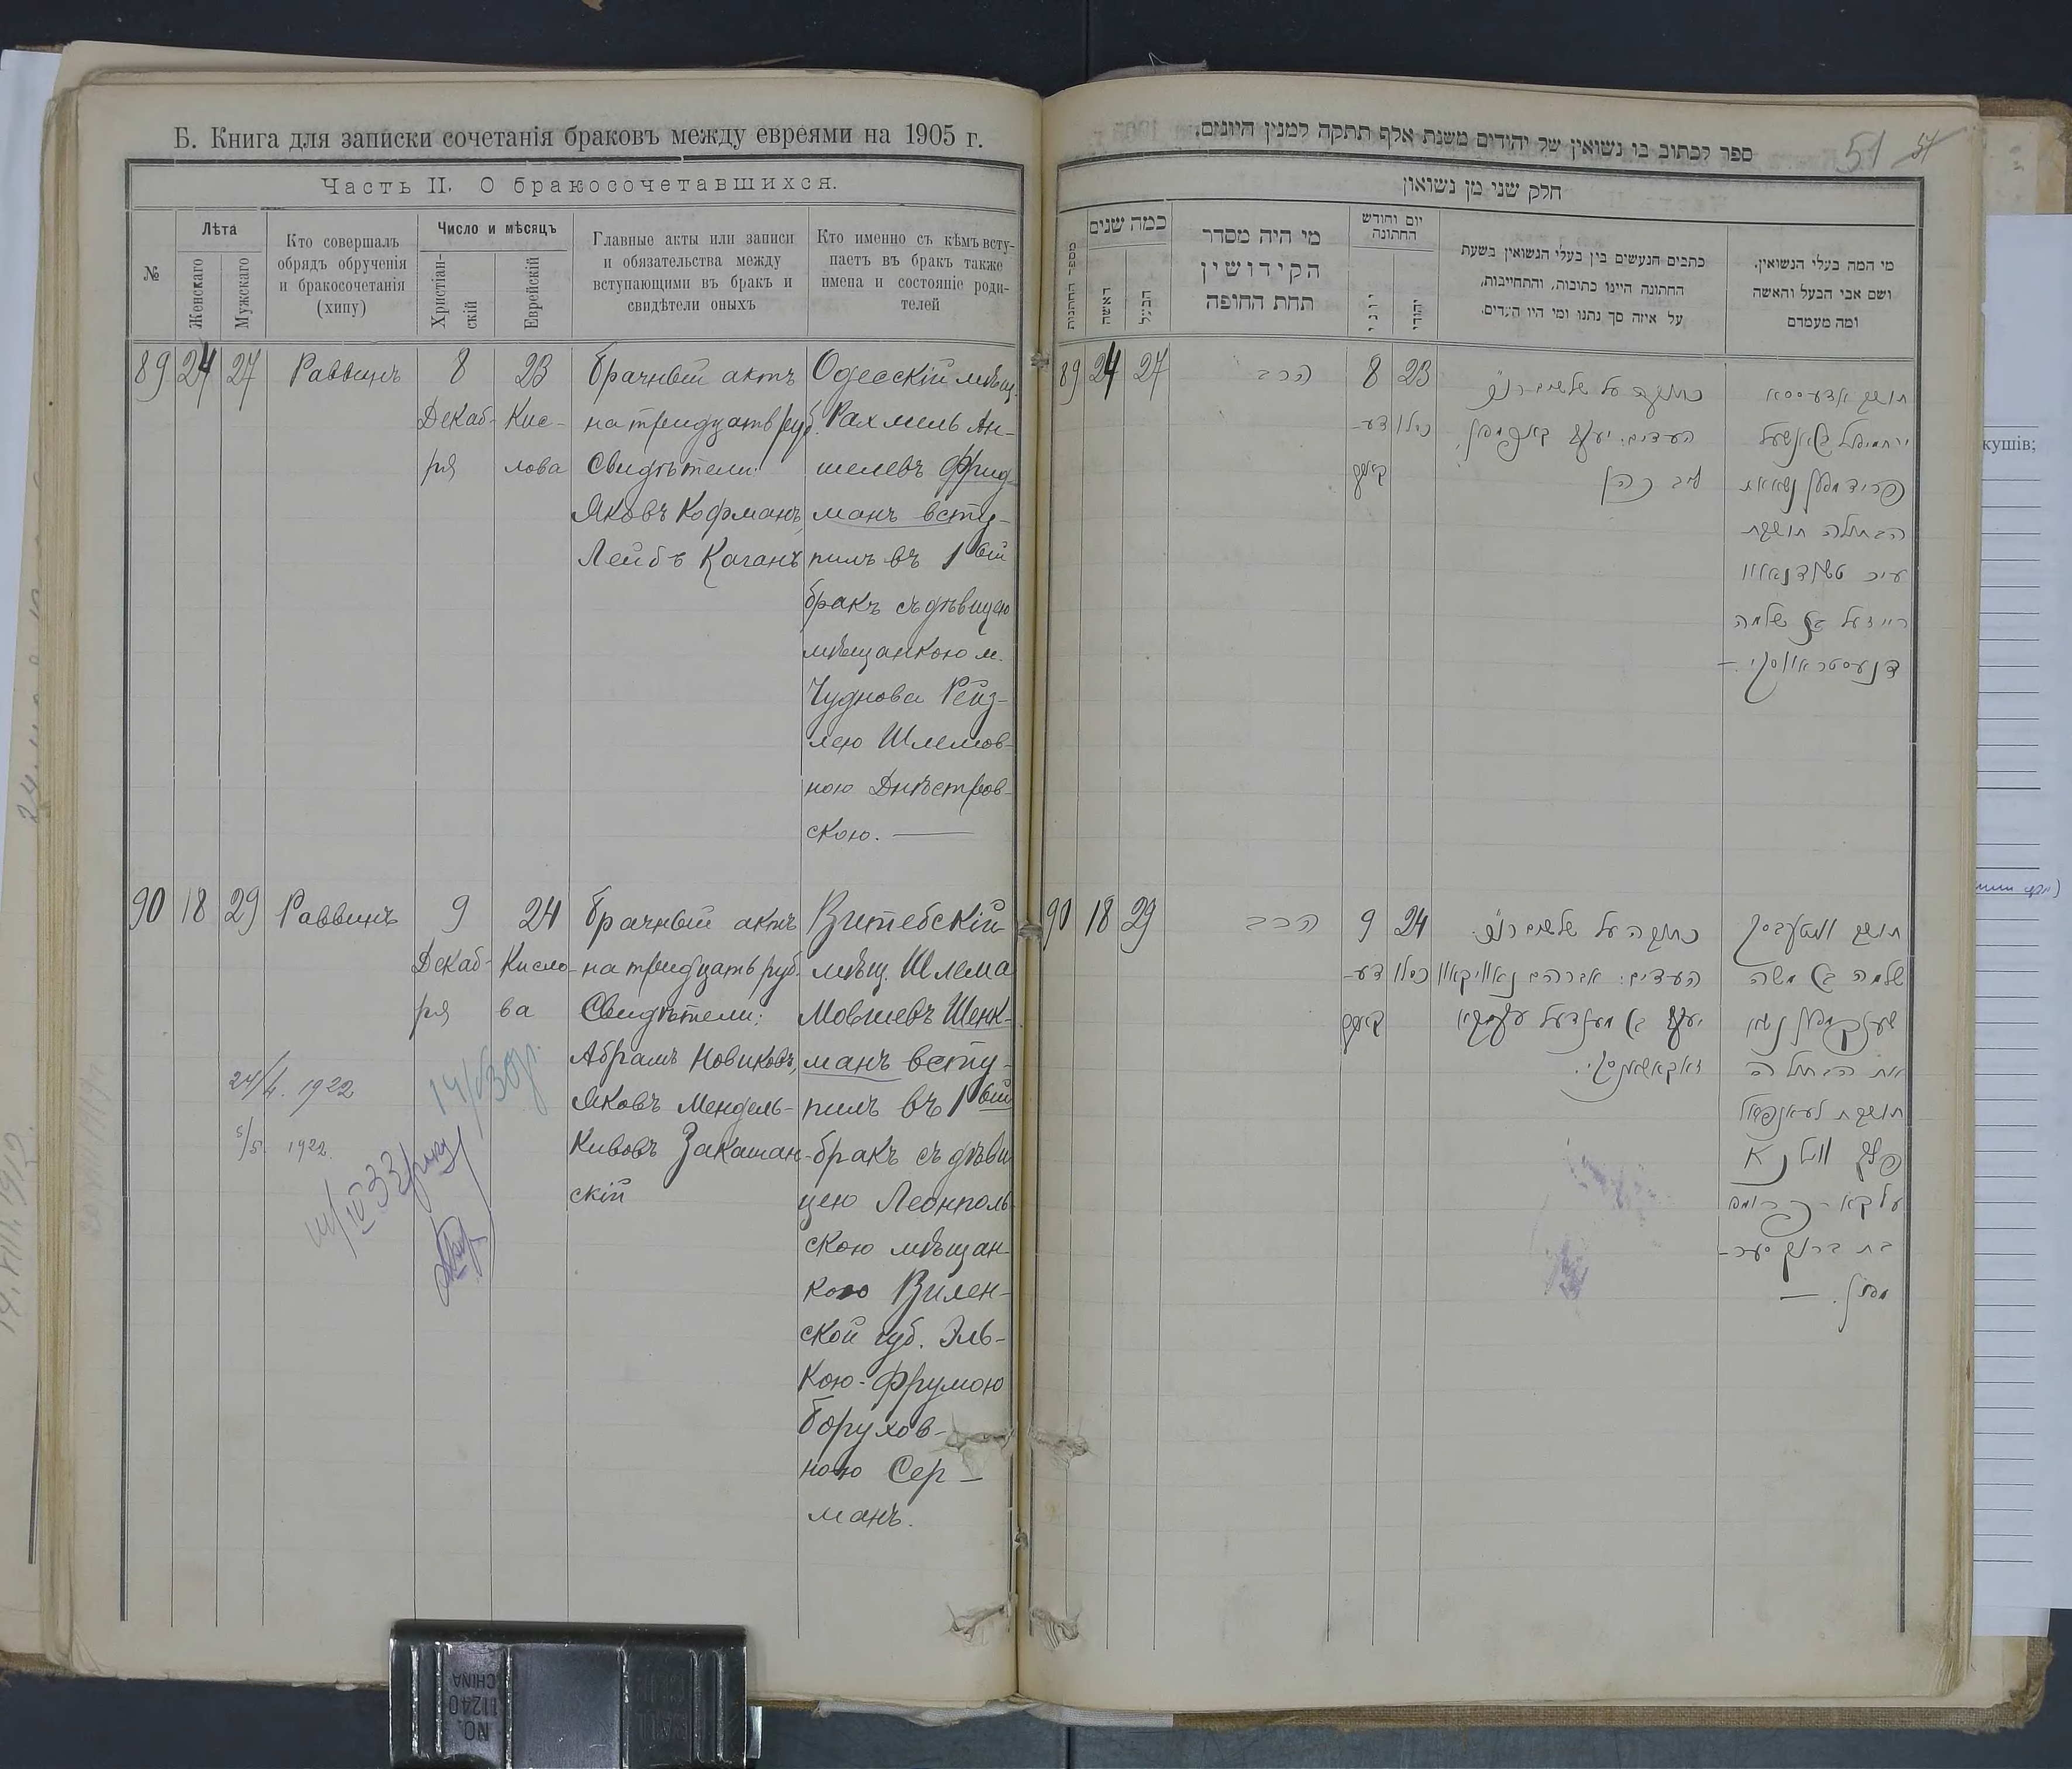 Б. Книга для записки сочетанія браковъ между евреями на 1905 г.
Часть II. О бракосочетавшихся.
№
Лѣта
Женскаго
Мужскаго
Кто совершалъ
обрядъ обрученія
и бракосочетанія
(хипу)
Число и мѣсяцъ
Христіан-
скій
Еврейскій
Главные акты или записи
и обязательства между
вступающими въ бракъ и
свидѣтели оныхъ
Кто именно съ кѣмъ всту-
паетъ въ бракъ также
имена и состояніе роди-
телей
89 24 27 Раввинъ 8 23
Декаб- Кис-
ря лова
Брачный актъ
на тридцать руб.
Свидѣтели:
Яковъ Кофманъ,
Лейбъ Каганъ
Одесскій мѣщ.
Рахмель Ан-
шелевъ Фрид-
манъ всту-
пилъ въ 1ый
бракъ съ дѣвицею
мѣщанкою м.
Чуднова Рейз-
лею Шлемов-
ною Днѣстров-
скою.
90 18 29 Раввинъ 9 24
Декаб- Кисло-
ря ва
Брачный актъ
на тридцать руб.
Свидѣтели:
Абрамъ Новиковъ,
Яковъ Мендель-
Кивовъ Закашан-
скій
Витебскій
мѣщ. Шлема
Мовшевъ Шенк-
манъ всту-
пилъ въ 1ый
бракъ съ дѣви
цею Леонполь
скою мѣщан-
кою Вилен-
ской губ. Эль-
кою-Фрумою
Борухов-
ною Сер-
манъ.
24/4. 1922
5/5. 1922.
ספר לכתוב בו נשואין של יהודים משנת אלף תתקה למנין היונים.
51
חלק שני מן נשואון
מספר החתונות
כמה שנים
האשה
הבעל
מי היה מסדר
הקידושין
תחת החופה
יום וחודש
החתונה
יוני
יהודי
כתבים הנעשים בין בעלי הנשואין בשעת
החתונה היינו כתובות, והתחייבות,
על איזה סך נתנו ומי היו העדים.
מי המה בעלי הנשואין.
ושם אבי הבעל והאשה
ומה מעמדם
89 24 27 הרב 8 23
כסלו דע-
קאבר
כתובה על שלשים רו״כ
העדים: יעקב קאפמאן,
ליב כהן
תושב אדעססא
ירחמיאל בן אנשעל
פרידמאן נשא את
הבתולה תושבת
עיר טשודנאוו
רייזעל בת שלמה
דנעסטראווסקי.
90 18 29 הרב 9 24
כסלו דע-
קאבר
כתובה על שלשים רו״כ.
העדים: אברהם נאוויקאוו
יעקב בן מענדעל
זאקאשאנסקי.
תושב וויטעבסק
שלמה בן משה
שענקמאן נשא
את הבתולה
תושבת לעאנפאל
פלך ווילנא
עלקא-פרומא
בת ברוך סער-
מאן.
NO.
11240
CHINA
кушів;